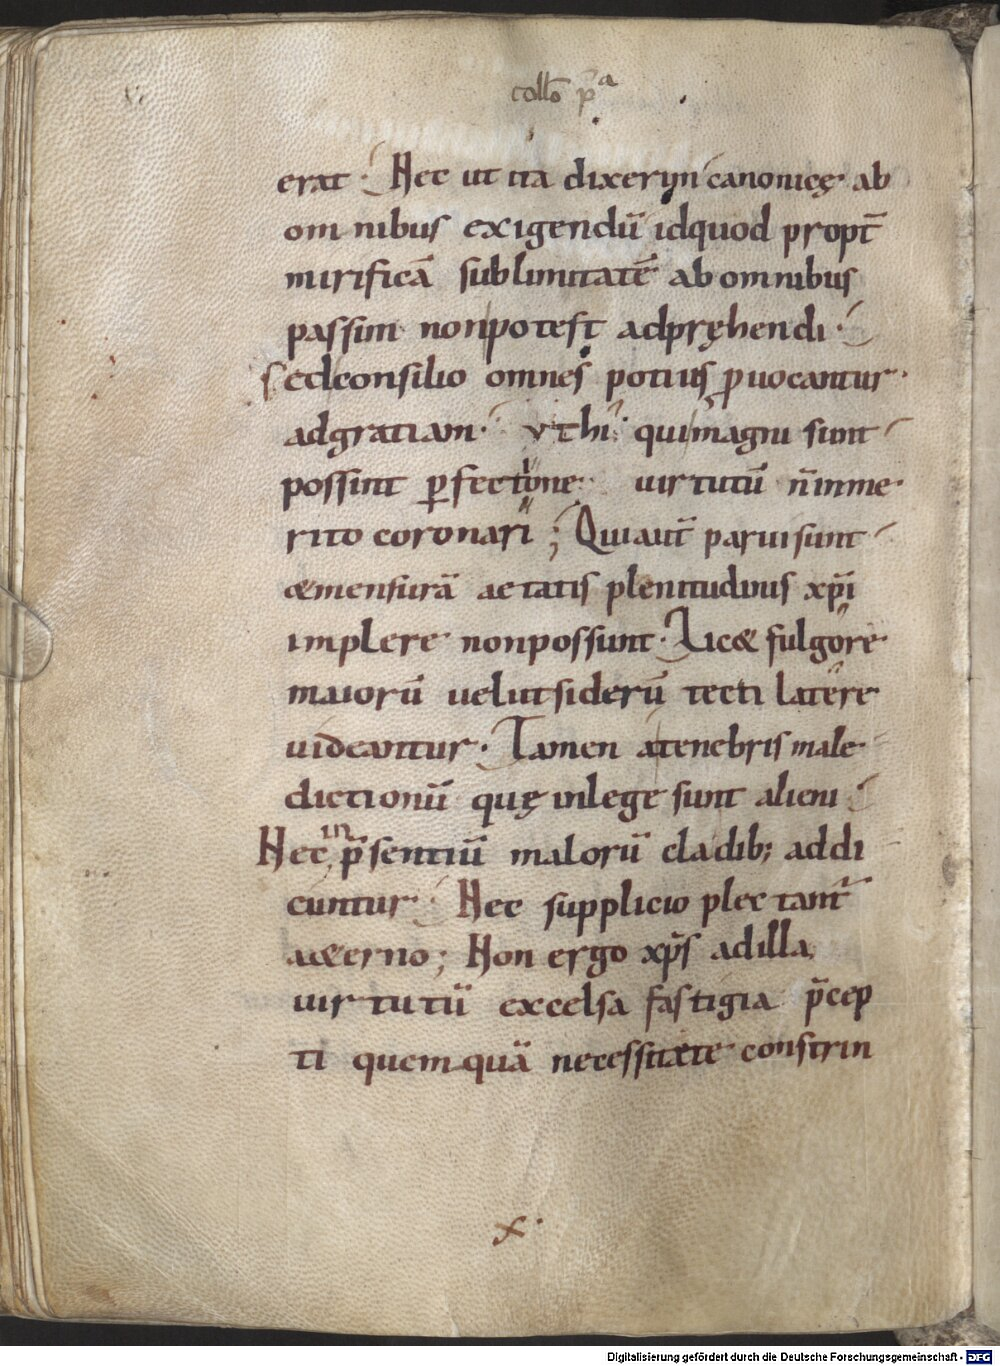 collō pͣ
erat · Nec ut ita dixerim canonicę ab
omnibus exigendū idquod propt̄
mirificā sublimitatē abomnibus
passim nonpotest adpręhendi ·
sedconsilio omnes potius ꝓuocantur ·
adgratiam · vthi quimagni sunt
possint ꝑfectione uirtutū n̄inme
rito coronari ; Quiaut̄ paruisunt
&mensurā aetatis plenitudinis xp̄i
implere nonpossunt · Lic& fulgore
maiorū uelutsiderū tecti latere
uideantur · Tamen atenebris male
dictionū quę inlege sunt alieni
Nec in p̄sentiū malorū cladib; addi
cuntur · Nec supplicio plectant᷑
a&erno ; Non ergo xp̄s adilla
uirtutū excelsa fastigia p̄cep
ti quemquā necessitate constrin
x ·
Digitalisierung gefördert durch die Deutsche Forschungsgemeinschaft - DFG